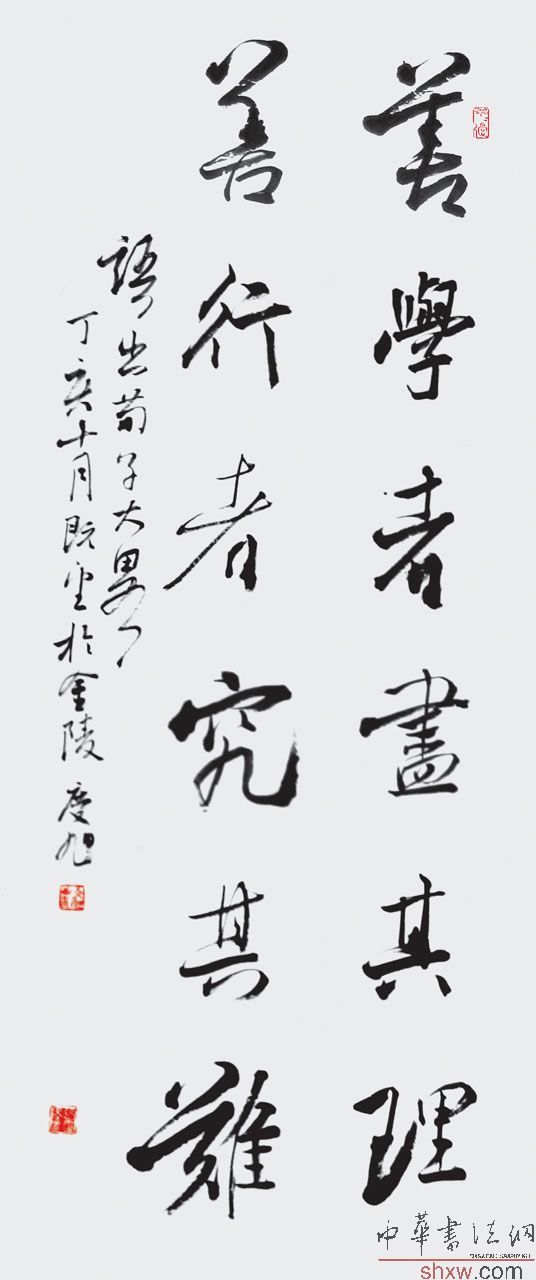 善學者盡其理
善行者究其難
語出荀子大略
丁亥十月既望於金陵 慶旭
中華書法網
shxw.com